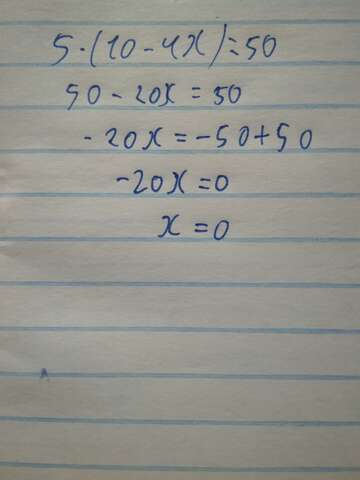 5·(10-4x)=50
50-20x=50
-20x=-50+50
-20x=0
x=0